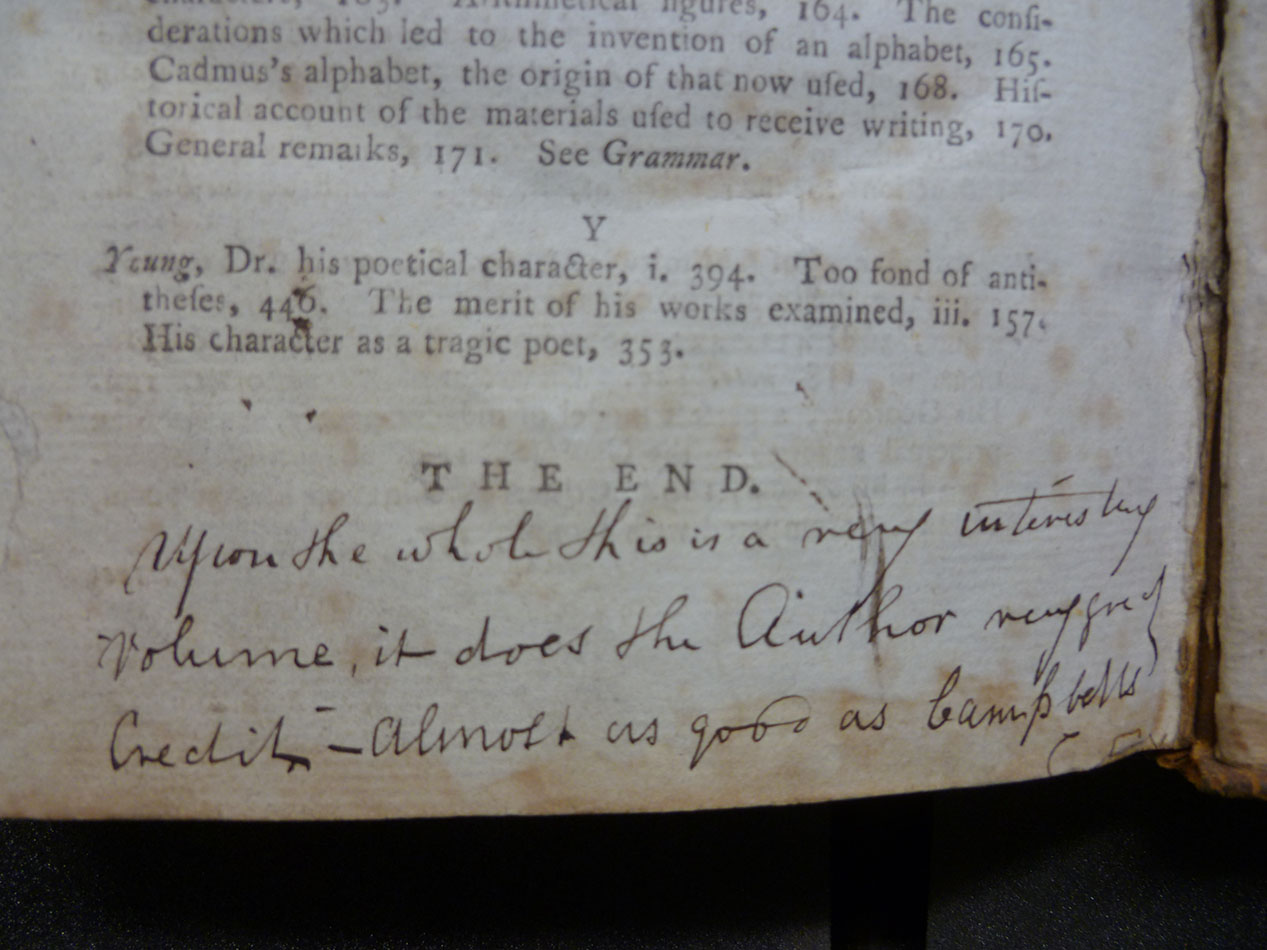 characters, 163. Arithmetical figures, 164. The conſi-
derations which led to the invention of an alphabet, 165.
Cadmus's alphabet, the origin of that now uſed, 168. Hiſ-
torical account of the materials uſed to receive writing, 170.
General remarks, 171. See Grammar.
Y
Young, Dr. his poetical character, i. 394. Too fond of anti-
theſes, 446. The merit of his works examined, iii. 157.
His character as a tragic poet, 353.
THE END.
Upon the whole this is a very interesting
volume, it does the Author very great
Credit, – almost as good as Campbells